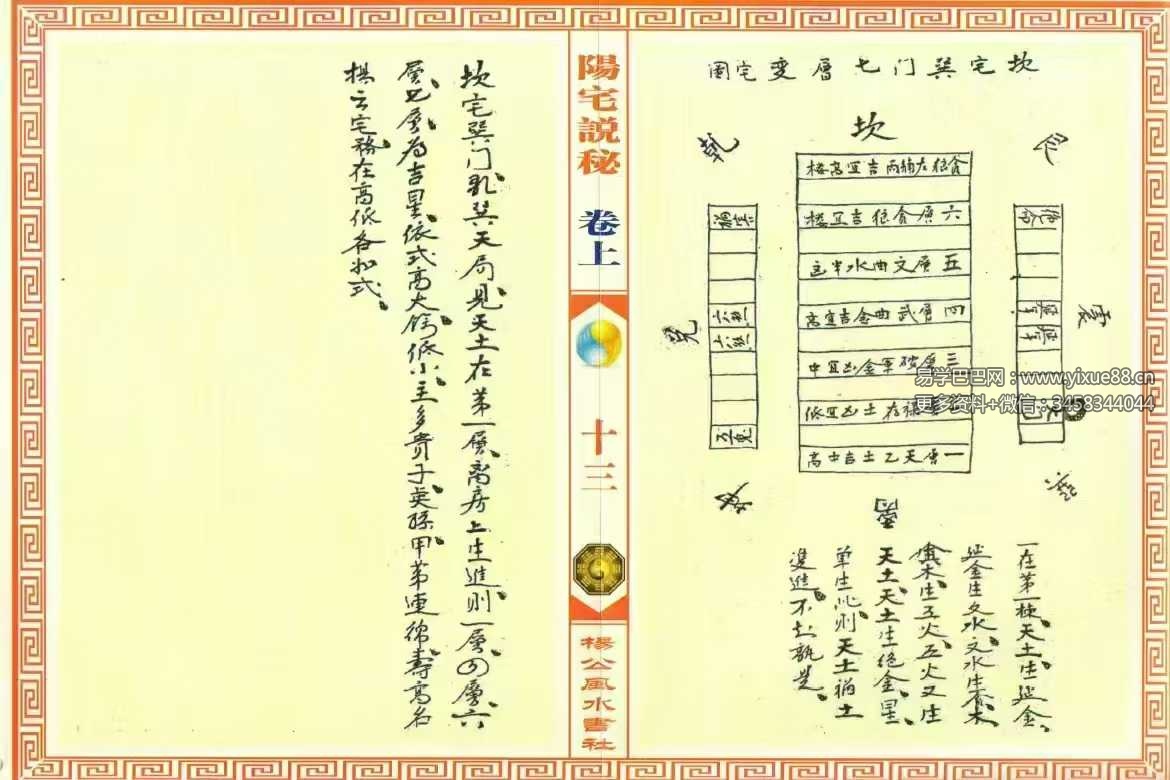 坎宅巽门七層变宅圖
坎
乾
艮
震
巽
離
兑
貪狼左輔两吉宜高楼
六層貪狼吉宜楼
五層文曲水半
四層武曲金吉宜高
三層破軍金凶宜中
禄存土凶宜低
一層天乙土吉
絶命
禍害
六煞
六煞
五鬼
一在第一棟天土生延金
延金生文水文水生
木生五火五火又生
天土天土生絶金星
單生此則天土
雙進不
陽宅説秘 卷上
十三
楊公風水書社
坎宅巽门巽天局見天土在第一層离房上生進則一層四層六
層七層為吉星依式高大低小主多貴子英孫甲第連綿壽高名
棋云宅務在高低各如式
易学巴巴网：www.yixue88.cn
更多资料+微信：3458344044